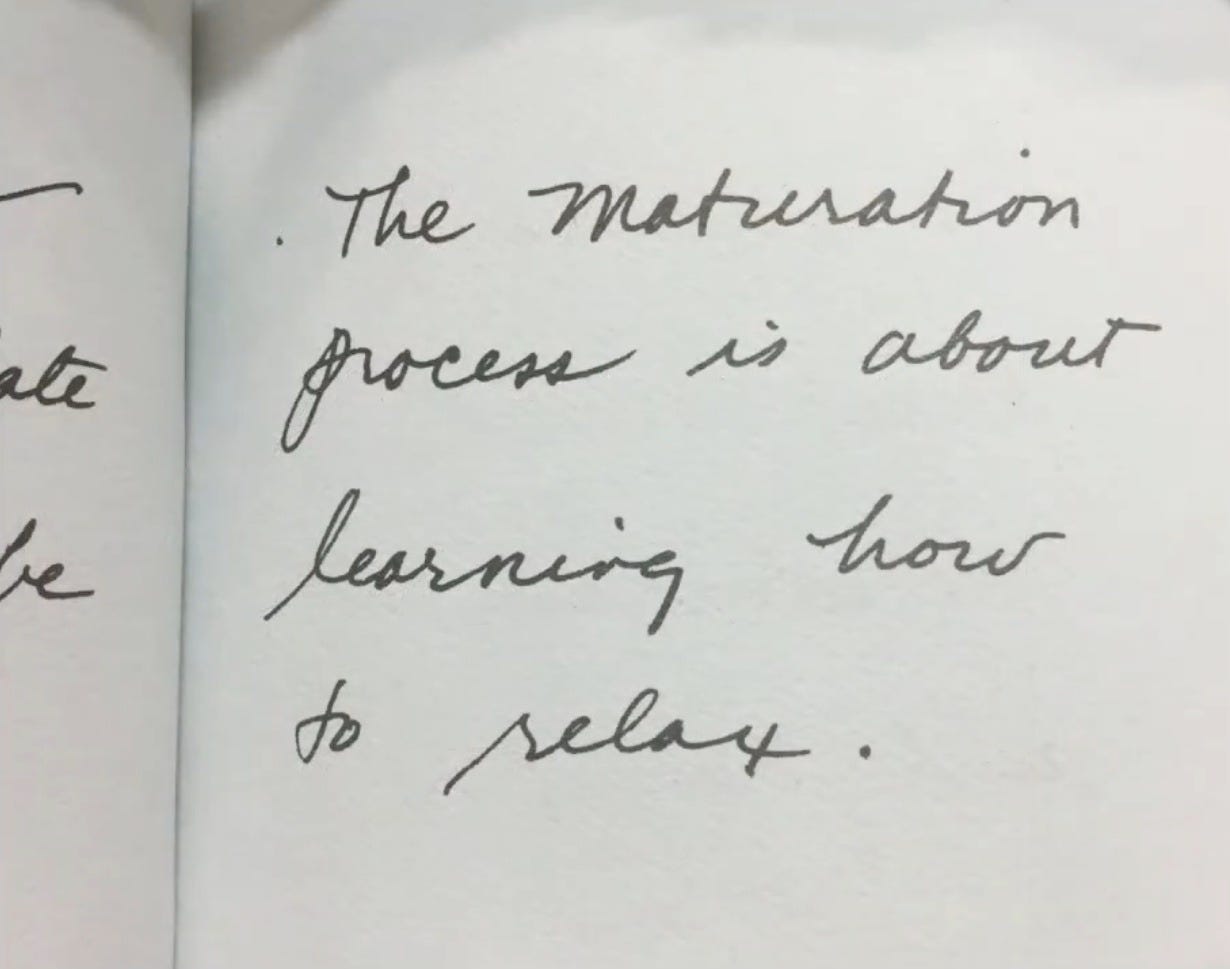 ate
be
. The maturation
process is about
learning how
to relax.